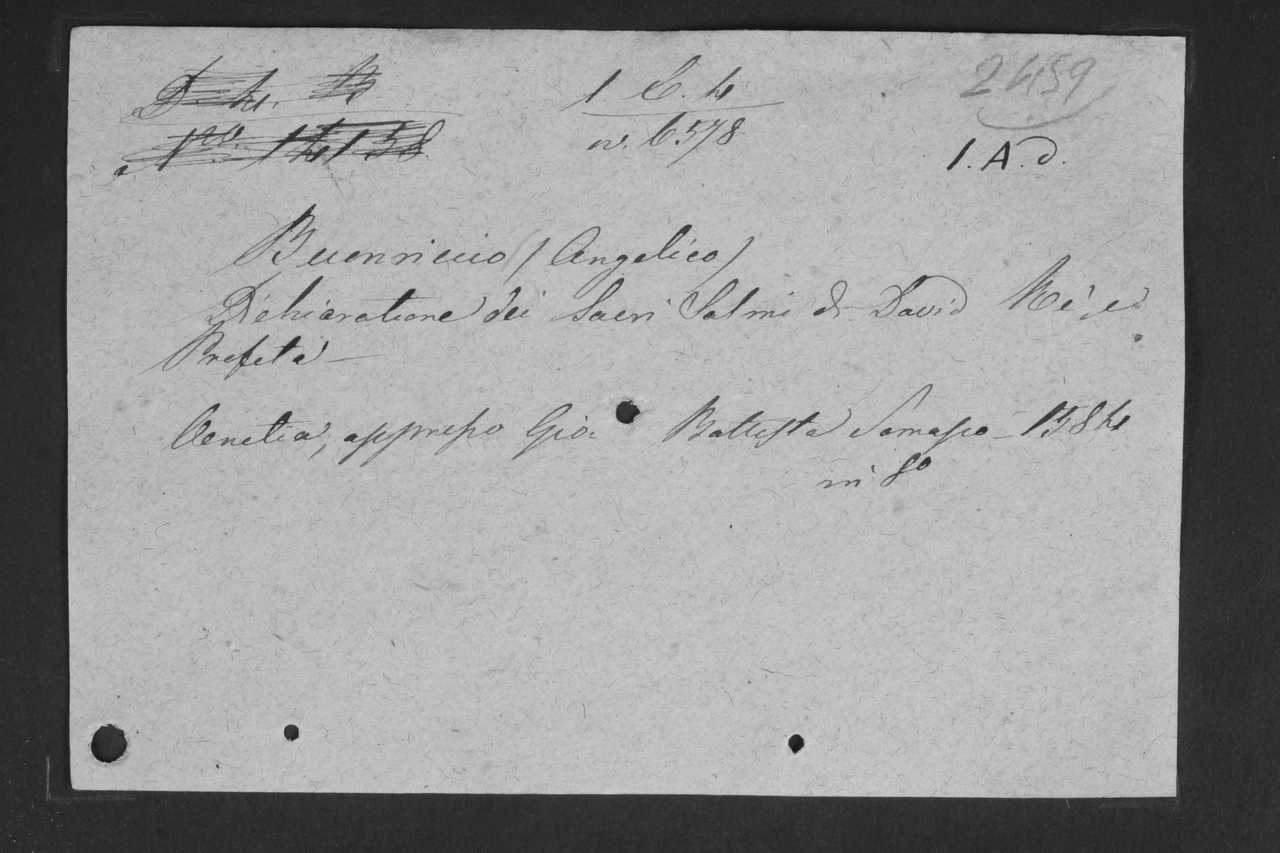 2459
1. C. 4
n. 6578
1. A. d.
Buonriccio (Angelico)
Dichiaratione dei Sacri Salmi di David Re, e
Profeta
Venetia, appresso Gio. Battista Somasco 1584
in 8º